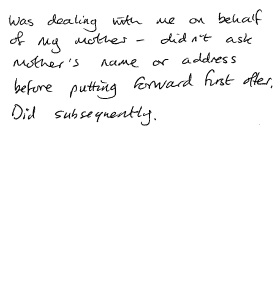 Was dealing with me on behalf
of my mother - didn't ask
mother's name or address
before putting forward first offer.
Did subsequently.